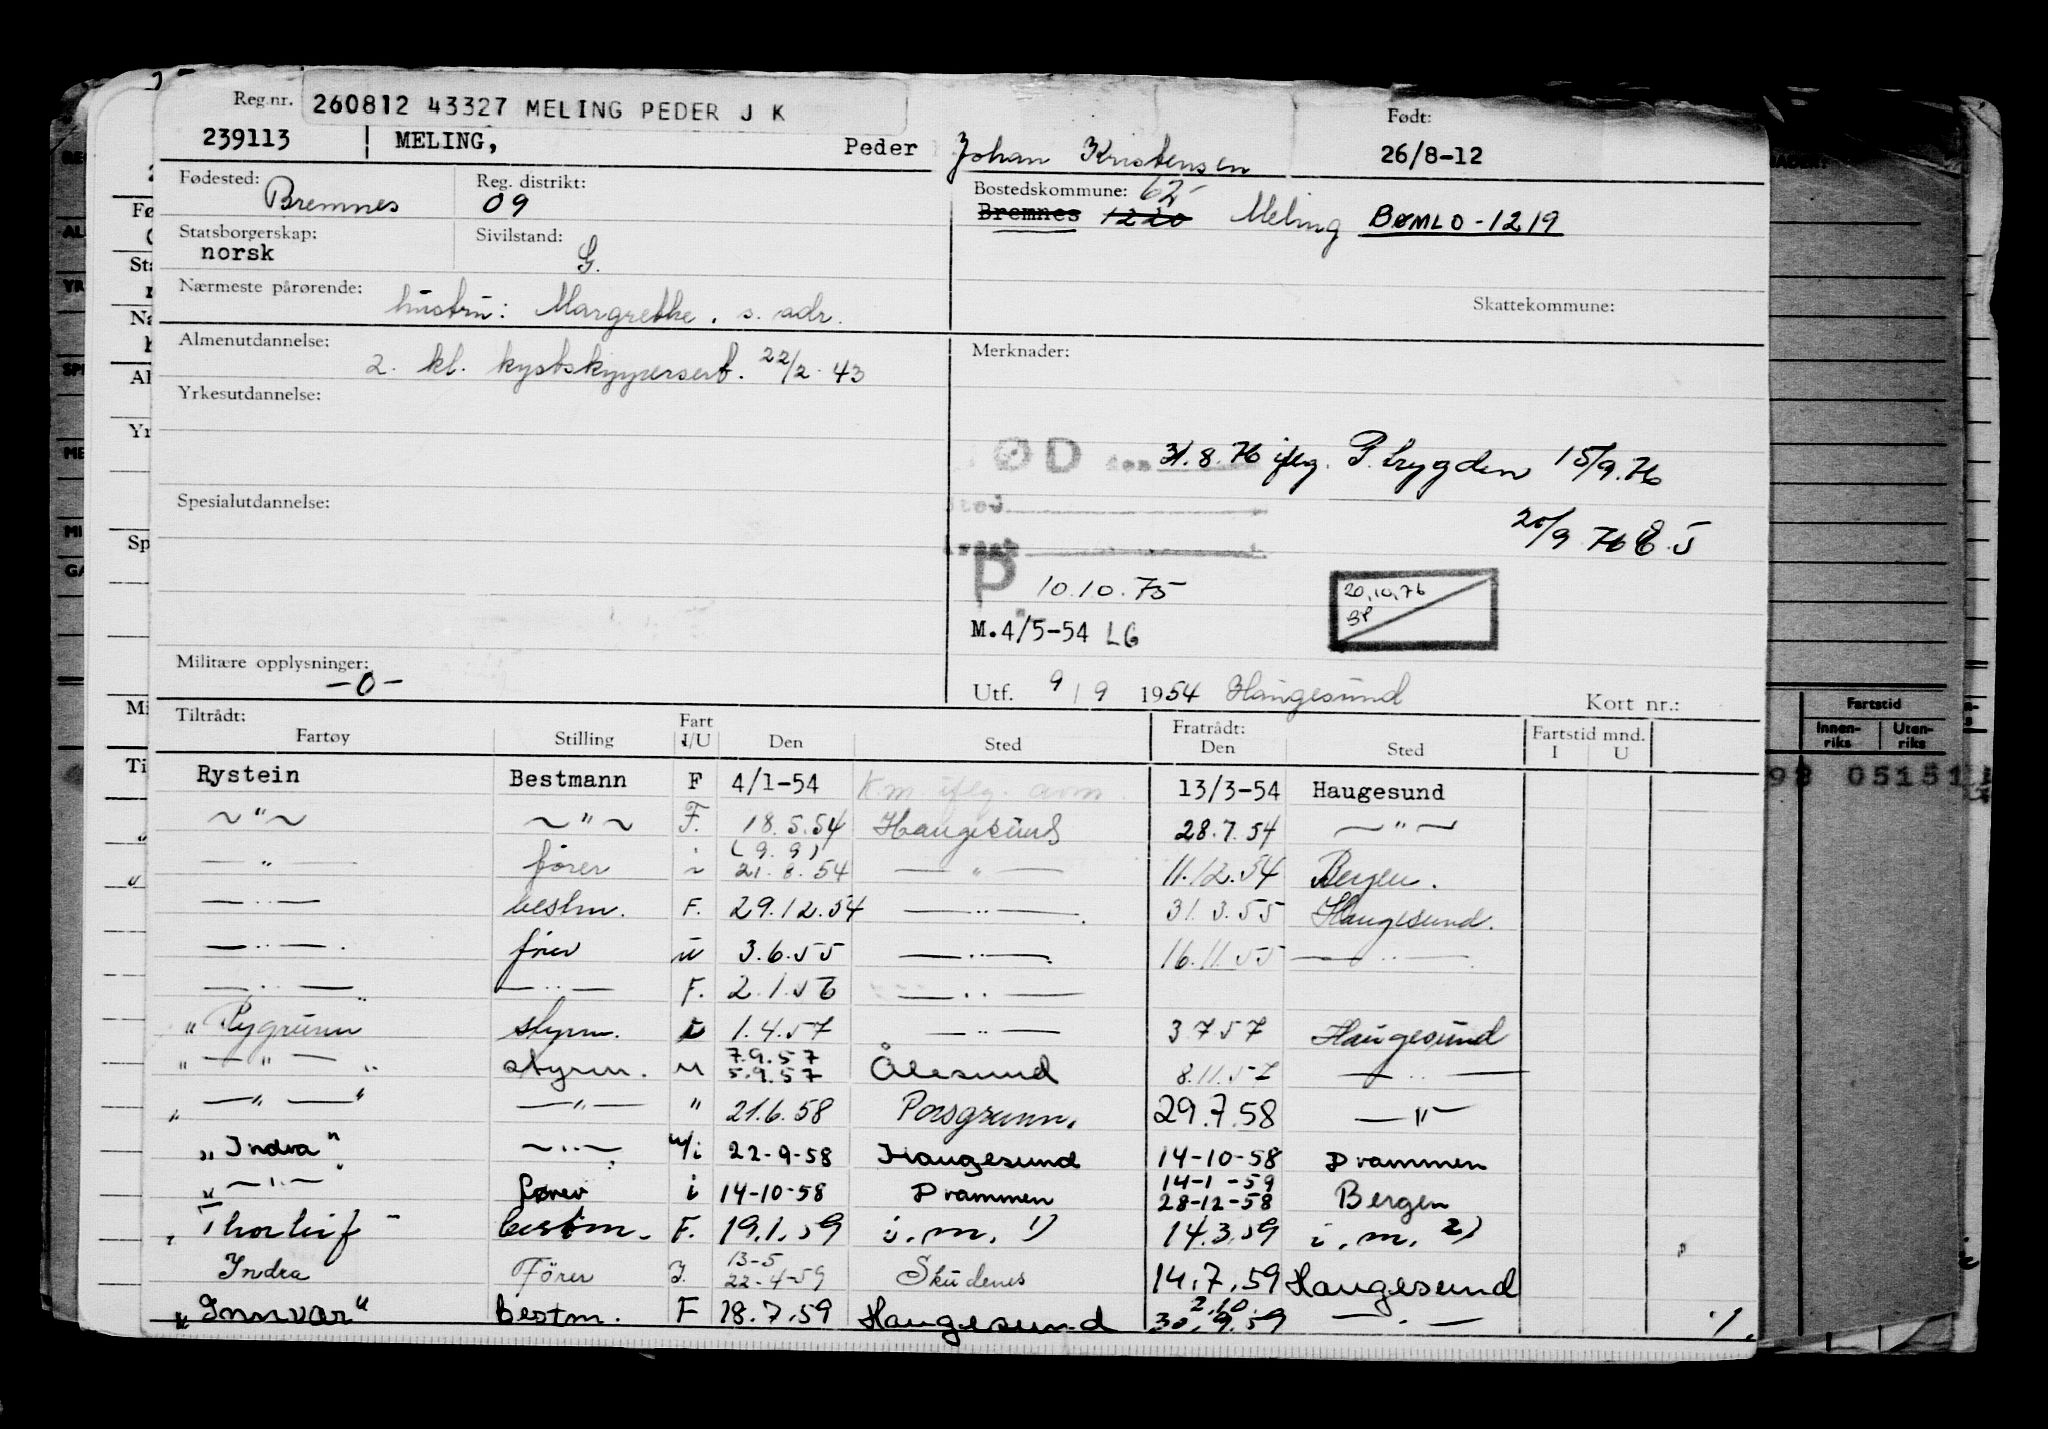 Reg.nr. 260812 43327 MELING PEDER J K
Født:
239113 MELING, Peder Johan Kristensen 26/8-12
Fødested: Bremnes Reg. distrikt: 09
Bostedskommune: 62-
Bremnes 1220 Meling BØMLO - 1219
Statsborgerskap: norsk Sivilstand: G.
Nærmeste pårørende: hustru: Margrethe. s. adr.
Skattekommune:
Almenutdannelse: 2. kl. kystskippersert. 22/2-43
Merknader:
Yrkesutdannelse:
ØD den 31.8.76 iflg. P. trygden 15/9.76
Spesialutdannelse:
sted
20/9 76
årsak
P 10.10.75
20.10.76
M.4/5-54 LG
Militære opplysninger: -0-
Utf. 9/9 1954 Haugesund Kort nr.:
Tiltrådt: Fratrådt: Fartstid mnd.
Fartøy Stilling Fart I/U Den Sted Den Sted I U
Rystein Bestmann F 4/1-54 K.m. iflg. avm. 13/3-54 Haugesund
~"~ ~"~ F. 18.5.54 Haugesund 28.7.54 —"—
—"— fører i (9.9) 21.8.54 —"— 11.12.54 Bergen.
—"— bestm. F. 29.12.54 —"— 31.3.55 Haugesund.
—"— fører u 3.6.55 —"— 16.11.55 —"—
—"— —"— F. 2.1.56 —"—
"Rygrunn" styrm. i 1.4.57 —"— 3.7.57 Haugesund
"—"—" styrm. u 7.9.57 5.9.57 Ålesund 8.11.57 —"—
"—"—" —"— " 21.6.58 Porsgrunn. 29.7.58 —"—
"Indra" —"— u/i 22-9-58 Haugesund 14-10-58 Drammen
"—"—" fører i 14-10-58 Drammen 14-1-59 28-12-58 Bergen
"Thorleif" bestm. F. 19.1.59 i.m. 1) 14.3.59 i.m. 2)
Indra Fører I. 13-5 22-4-59 Skudenes 14.7.59 Haugesund
"Innvær" bestm. F 18.7.59 Haugesund 2.10. 30.9.59 —"— ./.
Fartstid
Innen-riks Uten-riks
05151